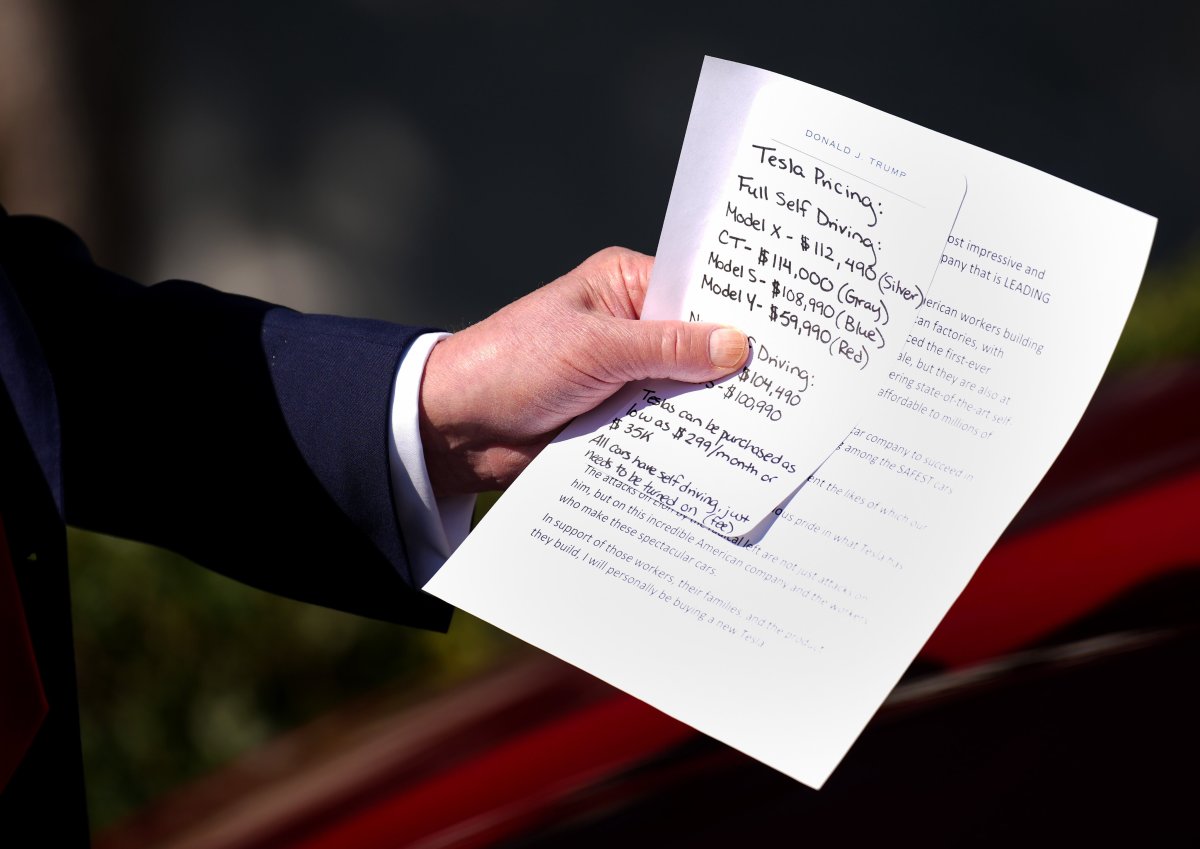 DONALD J. TRUMP
Tesla Pricing:
Full Self Driving:
Model X - $112,490 (Silver)
CT - $114,000 (Gray)
Model S - $108,990 (Blue)
Model Y - $59,990 (Red)
Driving:
$104,490
S - $100,990
Teslas can be purchased as
low as $299/month or
$35K
All cars have self driving, just
needs to be turned on (fee)
impressive and
that is LEADING
workers building
factories, with
the first-ever
but they are also at
state-of-the-art self.
affordable to millions of
company to succeed in
among the SAFEST cars
the likes of which our
pride in what Tesla has
The attacks on left are not just attacks on
him, but on this incredible American company and the workers
who make these spectacular cars.
In support of those workers, their families, and the product
they build, I will personally be buying a new Tesla